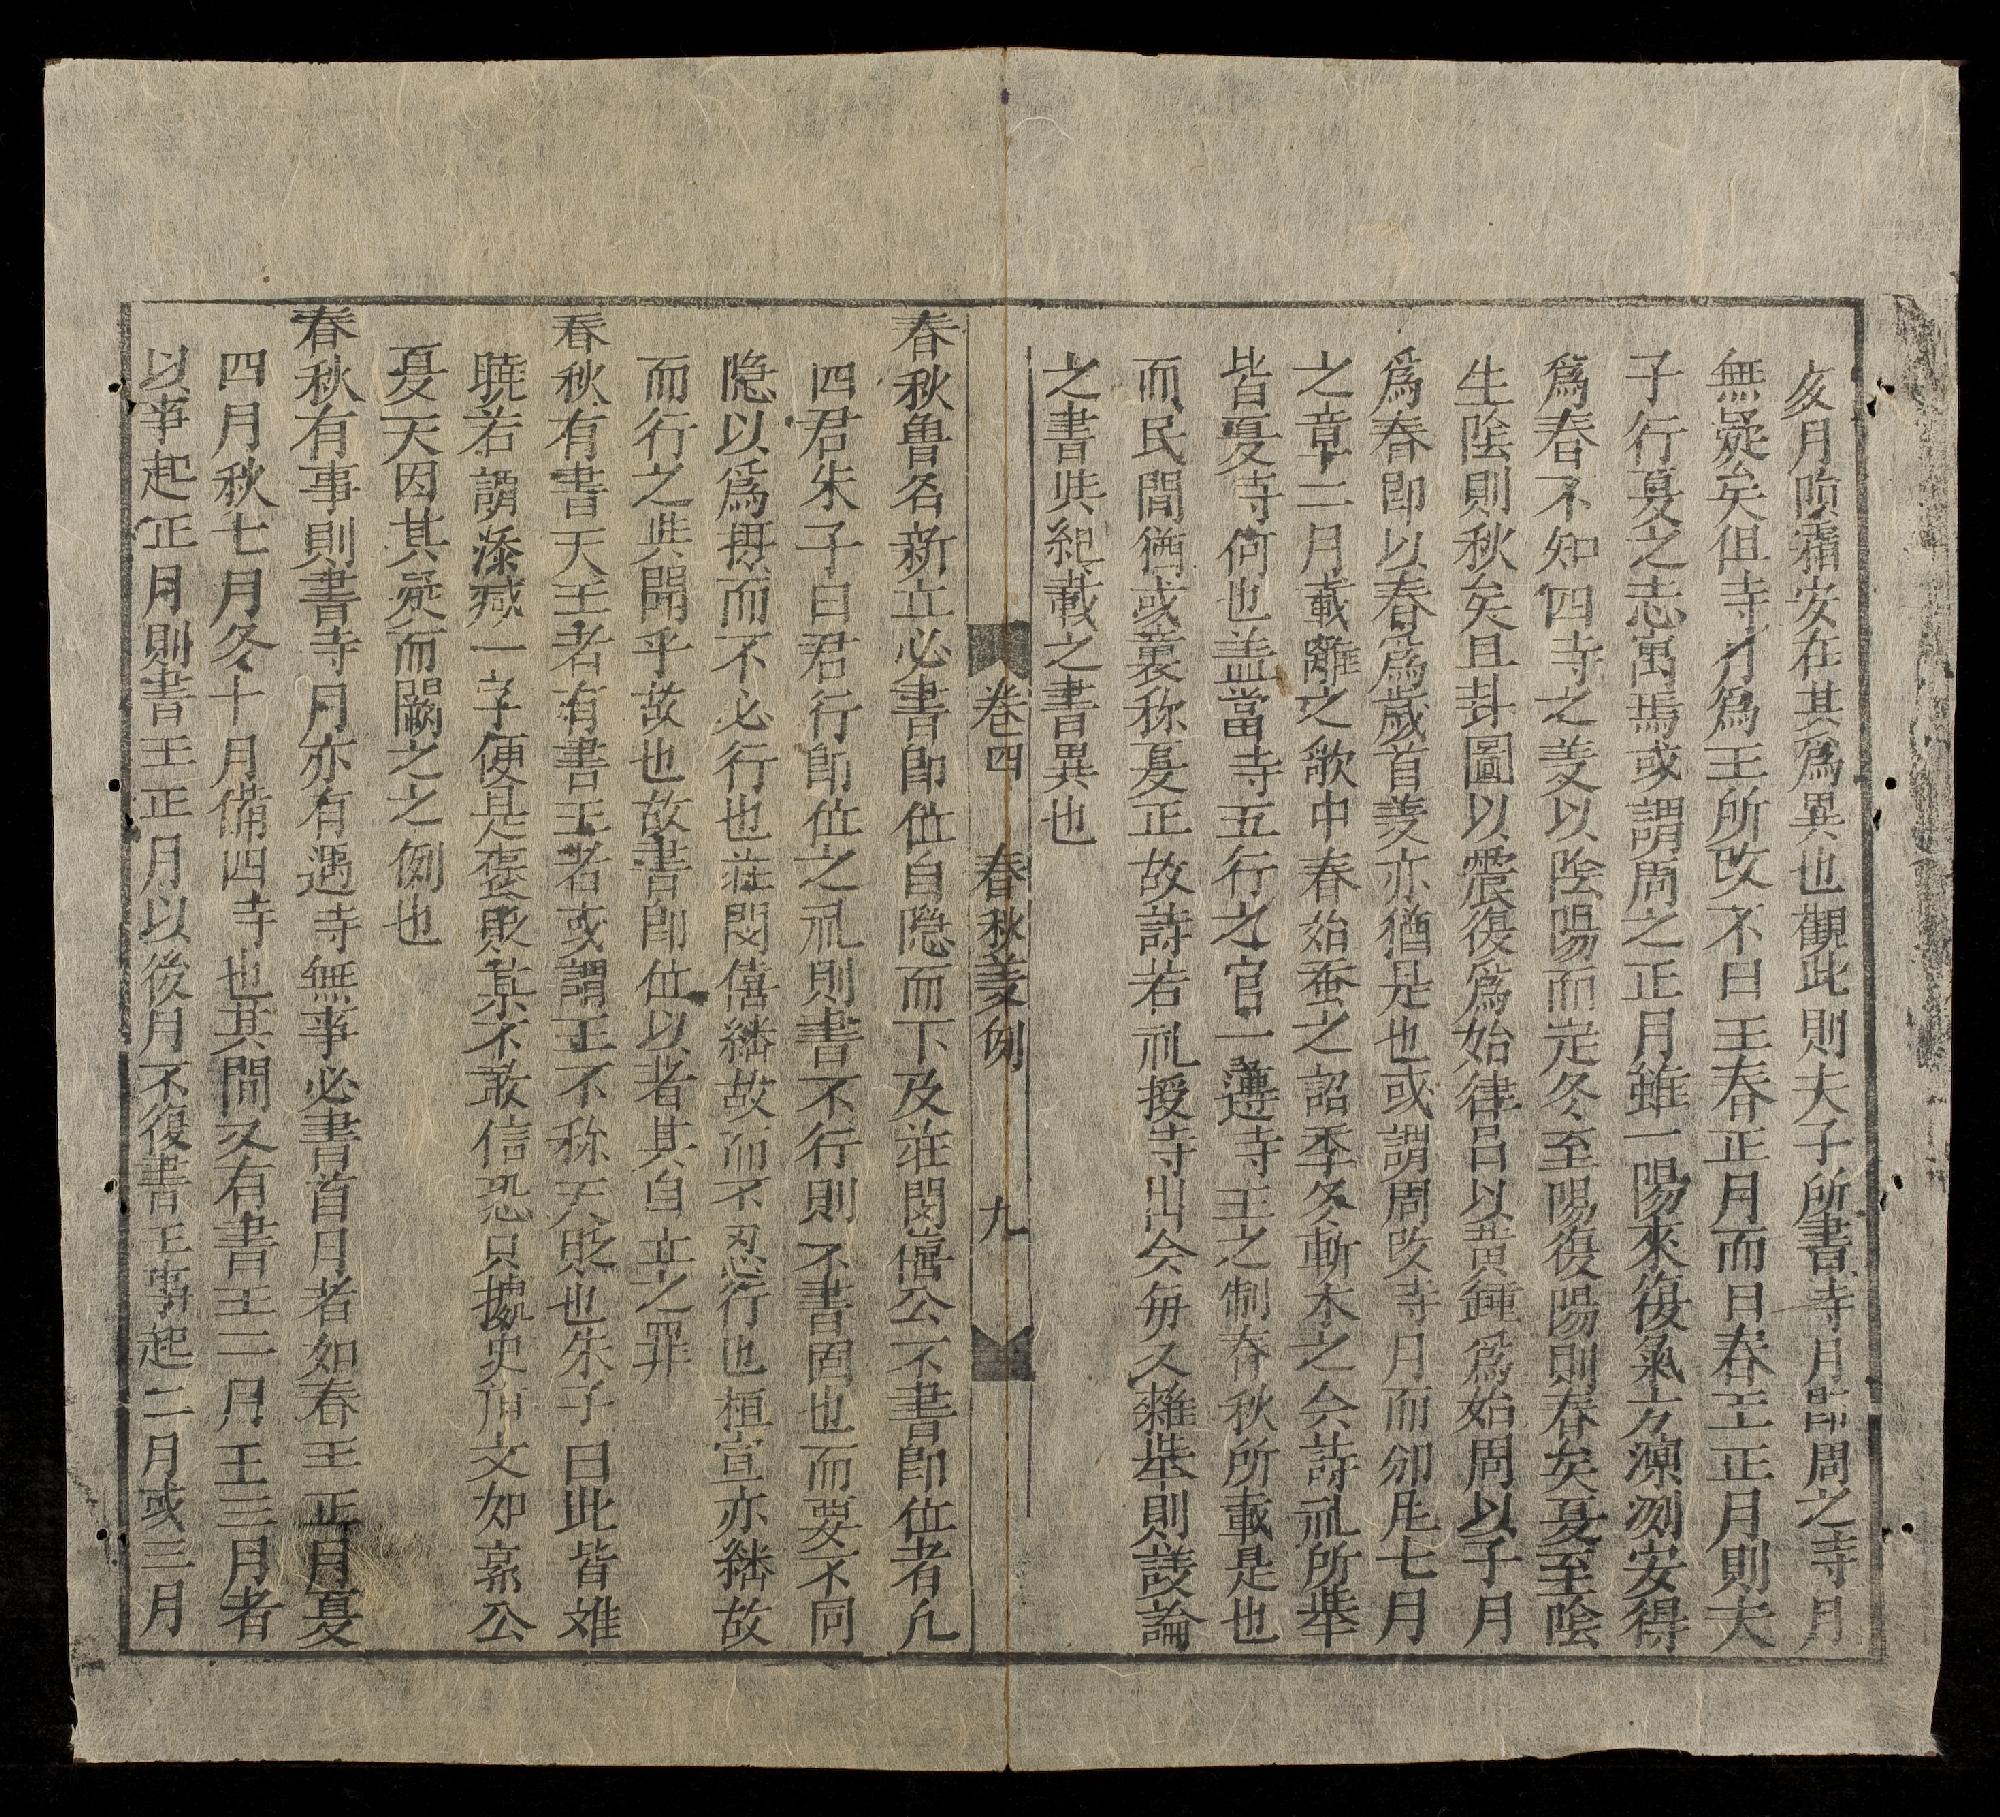 亥月隕霜安在其爲異也觀此則夫子所書寺月即周之寺月
無疑矣但寺月爲王所改不曰王春正月而曰春王正月則夫
子行夏之志寓焉或謂周之正月雖一陽來復氣方凛冽安得
爲春不知四寺之义以陰陽而定冬至陽復陽則春矣夏至陰
生陰則秋矣且卦圖以震復爲始律吕以黄鍾爲始周以子月
爲春即以春爲歲首义亦猶是也或謂周改寺月而邠凡七月
之章二月載離之歌中春始蚕之詔季冬斬木之令詩礼所举
皆夏寺何也盖當寺五行之官一遵寺王之制春秋所載是也
而民間猶或襄称夏正故詩若礼授寺出令毎又雜举則議論
之書與紀載之書異也
卷四 春秋义例 九
春秋魯君新立必書即位自隐而下及莊閔僖公不書即位者凡
四君朱子曰君行即位之礼則書不行則不書固也而要不同
隐以爲摄而不必行也莊閔僖継故而不忍行也桓宣亦継故
而行之與聞乎故也故書即位以著其自立之罪
春秋有書天王者有書王者或謂王不称天貶也朱子曰此皆难
曉若謂添减一字便是褒貶某不敢信恐只據史旧文如郭公
夏天因其疑而闕之之例也
春秋有事則書寺月亦有遇寺無事必書首月者如春王正月夏
四月秋七月冬十月備四寺也其間又有書王二月王三月者
以事起正月則書王正月以後月不復書王事起二月或三月